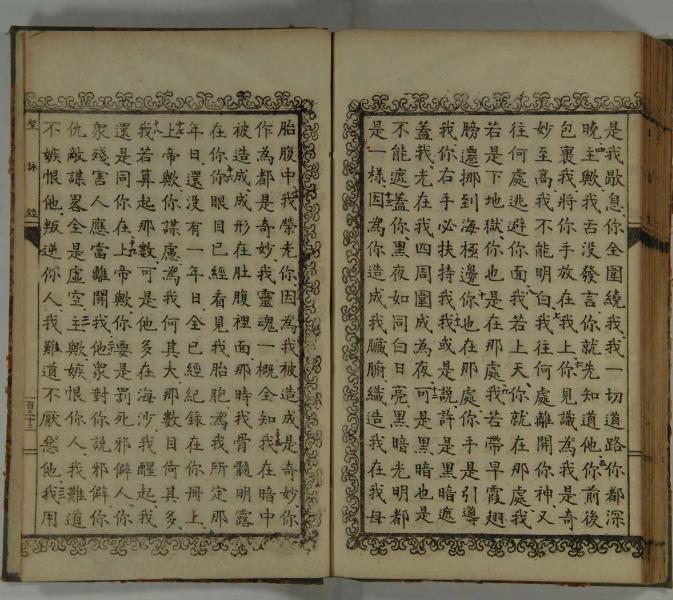 是我歇息你全圍繞我我一切道路你都深
曉主歟我舌沒發言你就先知道他你前後
包裹我將你手放在我上你見識為我是奇
妙至高我不能明白我往何處離開你神又
往何處逃避你面我若上天你就在那處我
若是下地獄你也是在那處我若帶早霞翅
膀遷挪到海極邊你也在那處你手是引導
我你右手必扶持我我或是說許是黑暗遮
蓋我光在我四周圍成為夜可是黑暗也是
不能遮蓋你黑夜如同白日亮黑暗光明都
是一樣因為你造成我臟腑織造我在我母
胎腹中我榮光你因為我被造成是奇妙你
作為都是奇妙我靈魂一概全知我在暗中
被造成成形在肚腹裡面那時我骨髓明露
在你你眼目已經看見我胎胞為我所定那
年日還没有一年日全已經紀錄在你冊上
上帝歟你謀慮為我何其大那數目何其多
我若算起那數可是他多在海沙我醒起我
還是同你在上帝歟你要是罰死邪僻人你
眾殘害人應當離開我他眾對你說邪僻你
仇敵謀畧全是虛空主歟嫉恨你人我難道
不嫉恨他叛逆你人我難道不厭惡他我用
聖詠經
百三十三